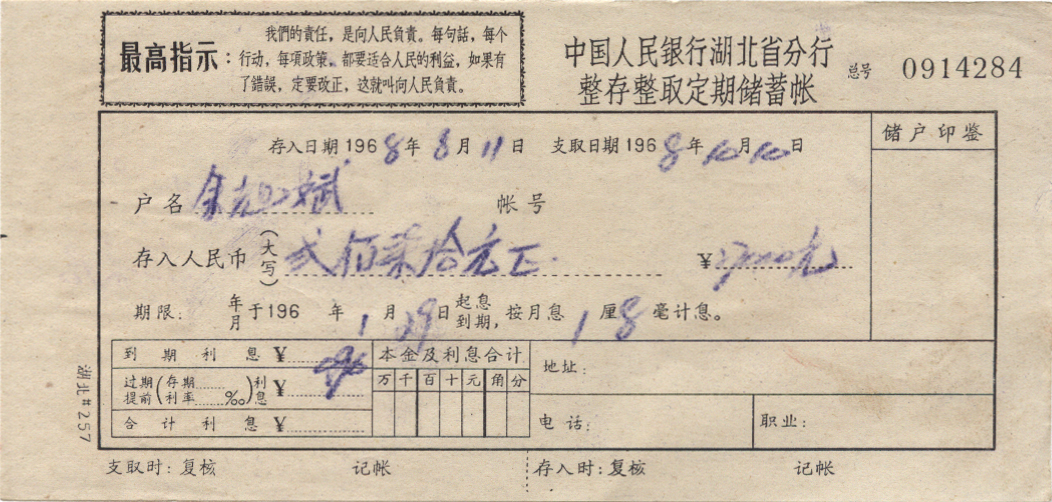 最高指示:
我們的責任，是向人民負責。每句話，每个
行动，每項政策，都要适合人民的利益，如果有
了錯誤，定要改正，这就叫向人民負責。
中国人民银行湖北省分行
整存整取定期储蓄帐
总号 0914284
存入日期 1968年8月11日 支取日期 1968年10月10日
储户印鉴
户名 余 斌 帐号
存入人民币(大写) 弍佰柒拾元正 ¥270.00元
期限: 年月于196 年1月 9日起息到期,按月息1厘8毫计息。
到期利息¥ 
本金及利息合计
万千百十元角分
过期提前(存期 利率 ‰)利息¥
合计利息¥
地址:
电话:
职业:
湖北#257
支取时:复核 记帐
存入时:复核 记帐